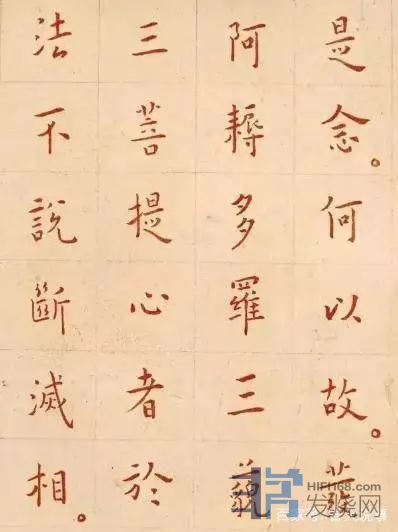 是念。何以故。發
阿耨多羅三藐
三菩提心者於
法不說斷滅相。
HIFI168.COM
发烧网